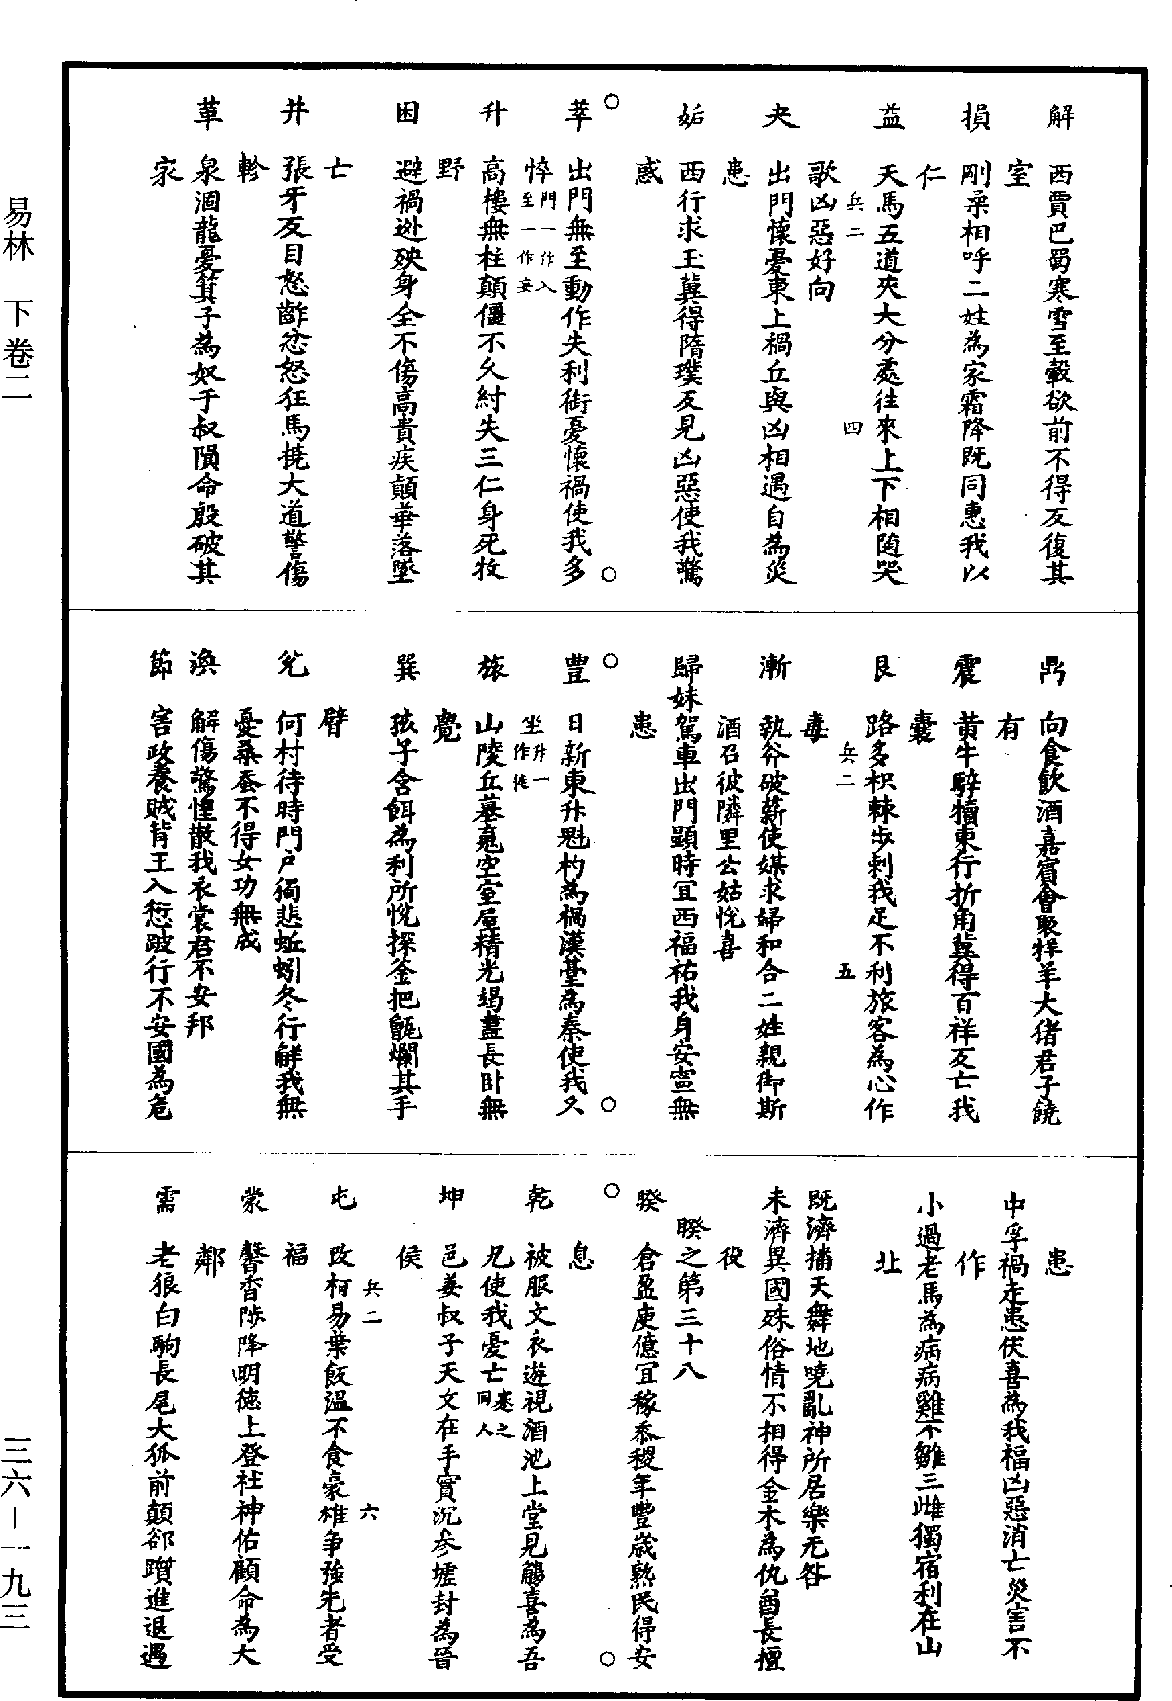 解　西賈巴蜀寒雪至轂欲前不得反復其
室
損　剛柔相呼二姓為家霜降既同惠我以
仁
益　天馬五道夾大分處往來上下相隨哭
兵二　四
歌凶惡好向
夬　出門懷憂東上禍丘與凶相遇自為災
患
姤　西行求玉冀得隋璞反見凶惡使我驚
惑
萃　出門無至動作失利銜憂懷禍使我多
悴　門一作入　至一作妄
升　高樓無柱顛僵不久紂失三仁身死牧
野
困　避禍逃殃身全不傷高貴疾顛華落墜
亡
井　張牙反目怒齚忿怒狂馬撓大道驚傷
軫
革　泉涸龍憂箕子為奴于叔隕命殷破其
家
鼎　向食飲酒嘉賓會聚牂羊大猪君子饒
有
震　黃牛騂犢東行折角冀得百祥反亡我
囊
艮　路多枳棘步刺我足不利旅客為心作
兵二　五
毒
漸　執斧破薪使媒求婦和合二姓親御斯
酒召彼隣里公姑悅喜
歸妹　駕車出門顯時宜西福祐我身安寧無
患
豐　日新東升魁杓為禍漢臺為秦使我久
坐　升一作徙
旅　山陵丘墓魂空室屋精光竭盡長臥無
覺
巽　孩子含餌為利所悅探釜把甑爛其手
臂
兌　何村待時門戶獨悲蚯蚓冬行解我無
憂桑蚕不得女功無成
渙　解傷驚惶散我衣裳君不安邦
節　害政養賊背王入愆跛行不安國為危
患
中孚　禍走患伏喜為我福凶惡消亡災害不
作
小過　老馬為病病雞不雛三雌獨宿利在山
北
既濟　播天舞地嘵亂神所居樂无咎
未濟　異國殊俗情不相得金木為仇酋長擅
役
睽之第三十八
睽　倉盈庾億宜稼黍稷年豐歲熟民得安
息
乾　被服文衣遊視酒池上堂見觴喜為吾
兄使我憂亡　蹇之同人
坤　邑姜叔子天文在手實沉參墟封為晉
侯
兵二　六
屯　改柯易葉飯溫不食豪雄爭強先者受
福
蒙　馨香陟降明德上登社神佑顧命為大
鄰
需　老狼白駒長尾大狐前顛卻躓進退遇
易林　下卷二
三六－一九三